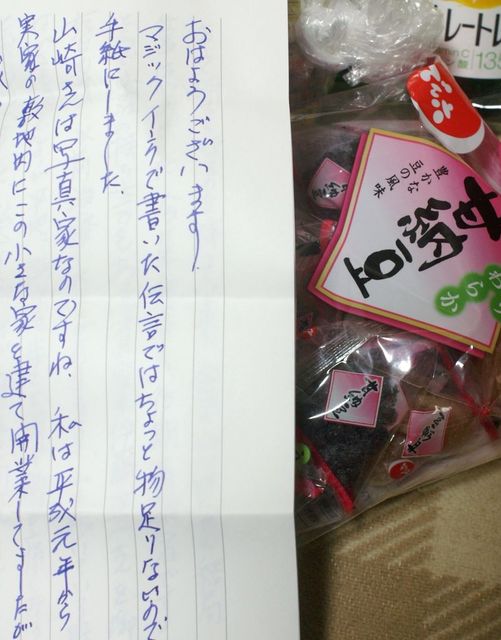 おはようございます！
マジックインクで書いた伝言ではちょっと物足りないので
手紙にしました。
山崎さんは写真家なのですね、私は平成元年から
実家の敷地内にこの小さな家を建て開業してましたが
でん六
豊かな
豆の風味
甘納豆
やわらか
甘納豆
甘納豆
レートレ
135